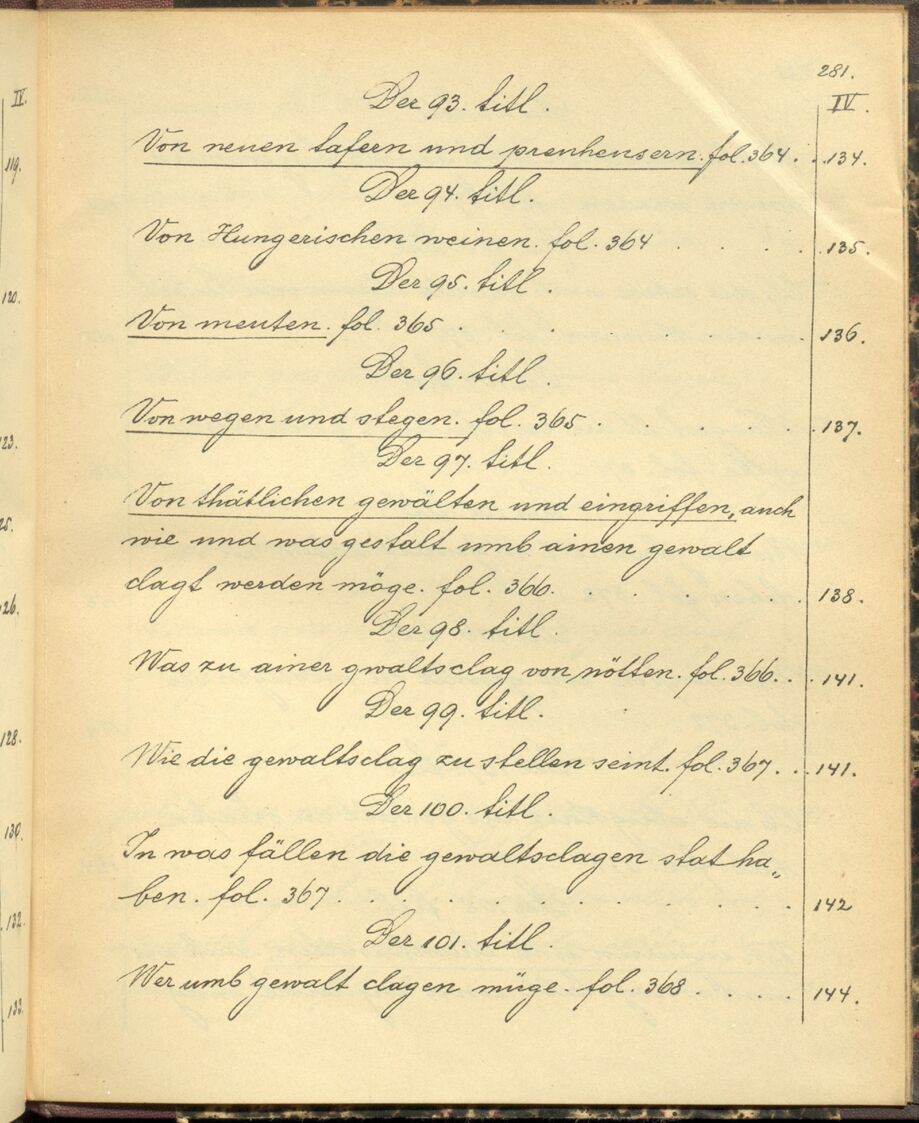 281.
IV.
Der 93. titl.
Von neuen tafern und preuheusern. fol. 364 . . 134.
Der 94. titl.
Von Hungerischen weinen. fol. 364 . . . . . 135.
Der 95. titl.
Von meuten. fol. 365 . . . 136.
Der 96. titl.
Von wegen und stegen. fol. 365 . . . . . . 137.
Der 97. titl.
Von thätlichen gewälten und eingriffen, auch
wie und was gestalt umb ainen gewalt
clagt werden möge. fol. 366. . . . . 138.
Der 98. titl.
Was zu ainer gwaltsclag von nötten. fol. 366. . . 141.
Der 99. titl.
Wie die gewaltsclag zu stellen seint. fol. 367. . . 141.
Der 100. titl.
In was fällen die gewaltsclagen stat ha„
ben. fol. 367 . . . . . . . . . 142
Der 101. titl.
Wer umb gewalt clagen müge. fol. 368 . . . . 144.
IV.
119.
120.
123.
126.
128.
130.
132.
133.